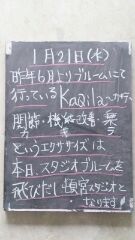 1月21日(水)
昨年6月よりブルームにて
行っている KaQiLa〜カキラ〜
関節・機能改善
というエクササイズは
本日、スタジオブルームを
飛びだし 慣営スタジオと
なります!